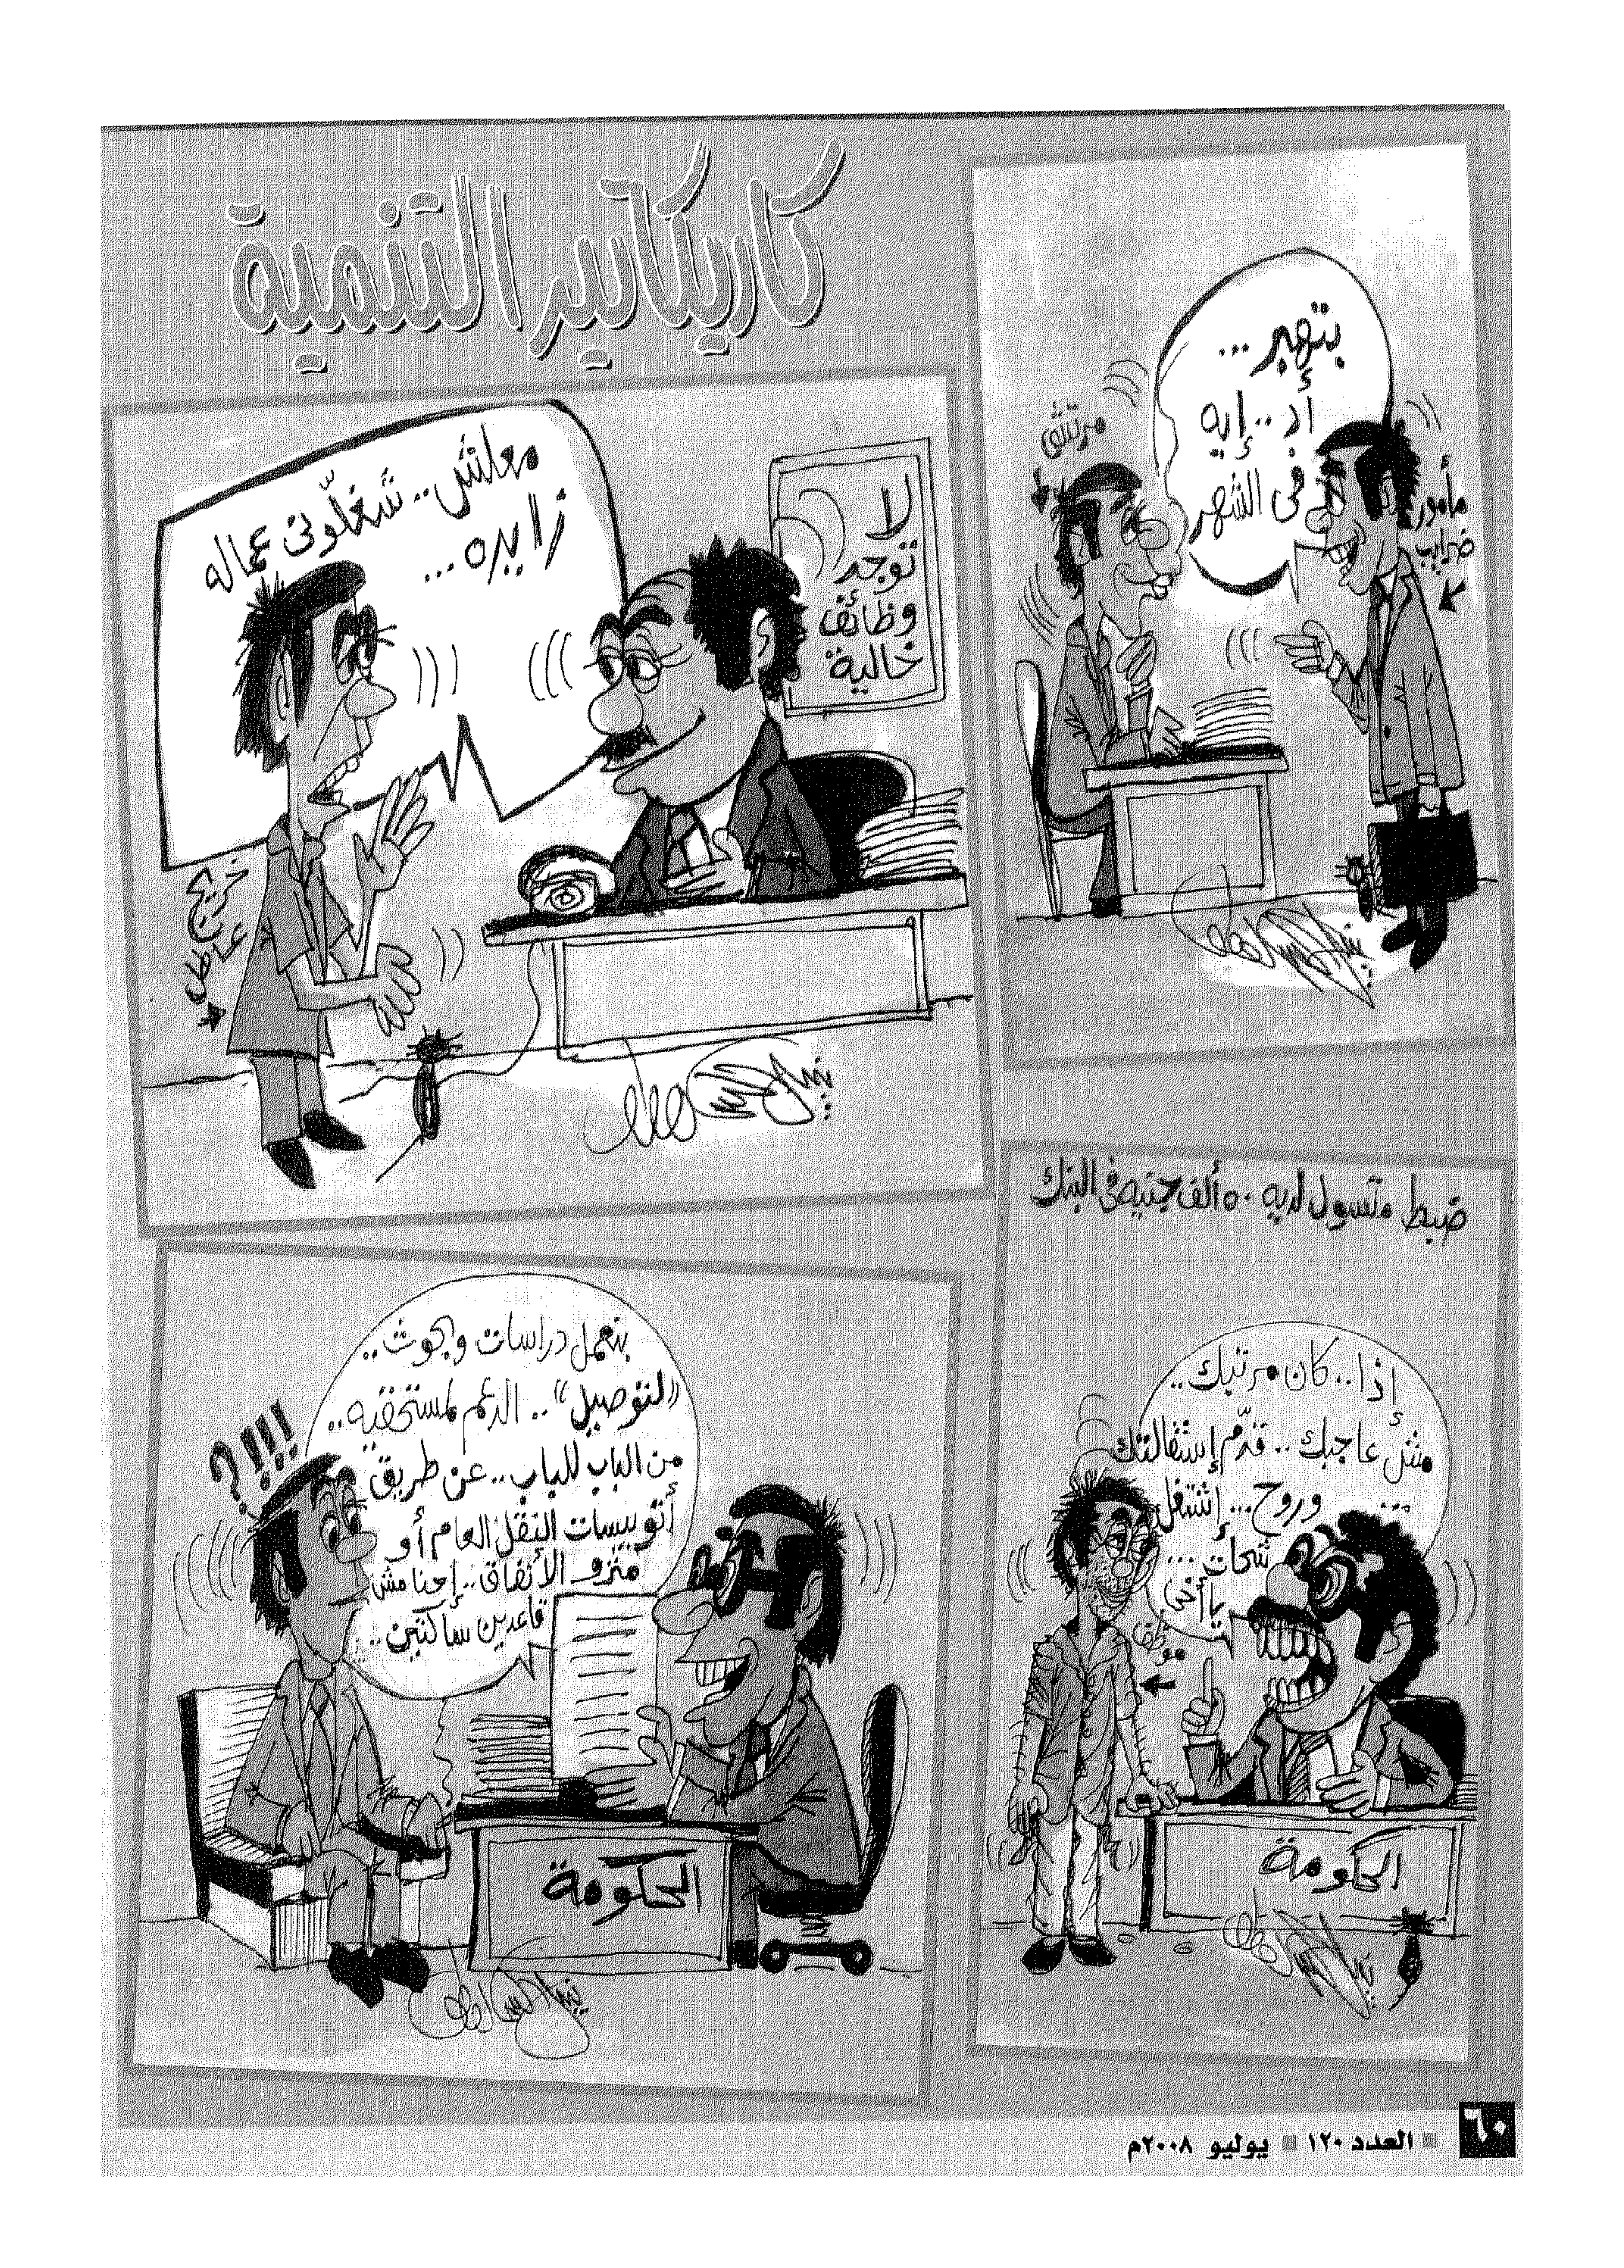 كاريكاتير التنمية
بتهبر...
أد..إيه
فى الشهر
مرتشى
مأمور
ضرايب
معلش.. شغلّونى عماله
زايده...
لا
توجد
وظائف
خالية
خريج
عاطل
ضبط متسول لديه ٥٠ ألف جنيه فى البنك
إذا.. كان مرتبك..
مش عاجبك.. قدّم إستقالتك
وروح... إشتغل
شحات...
يا أخى
موظف
الحكومة
بنعمل دراسات وبحوث..
«لتوصيل».. الدعم لمستحقيه..
من الباب للباب.. عن طريق
أتوبيسات النقل العام أو
مترو الأنفاق.. إحنا مش
قاعدين ساكتين..
؟!!!!
الحكومة
٦٠
العدد ١٢٠ يوليو ٢٠٠٨م